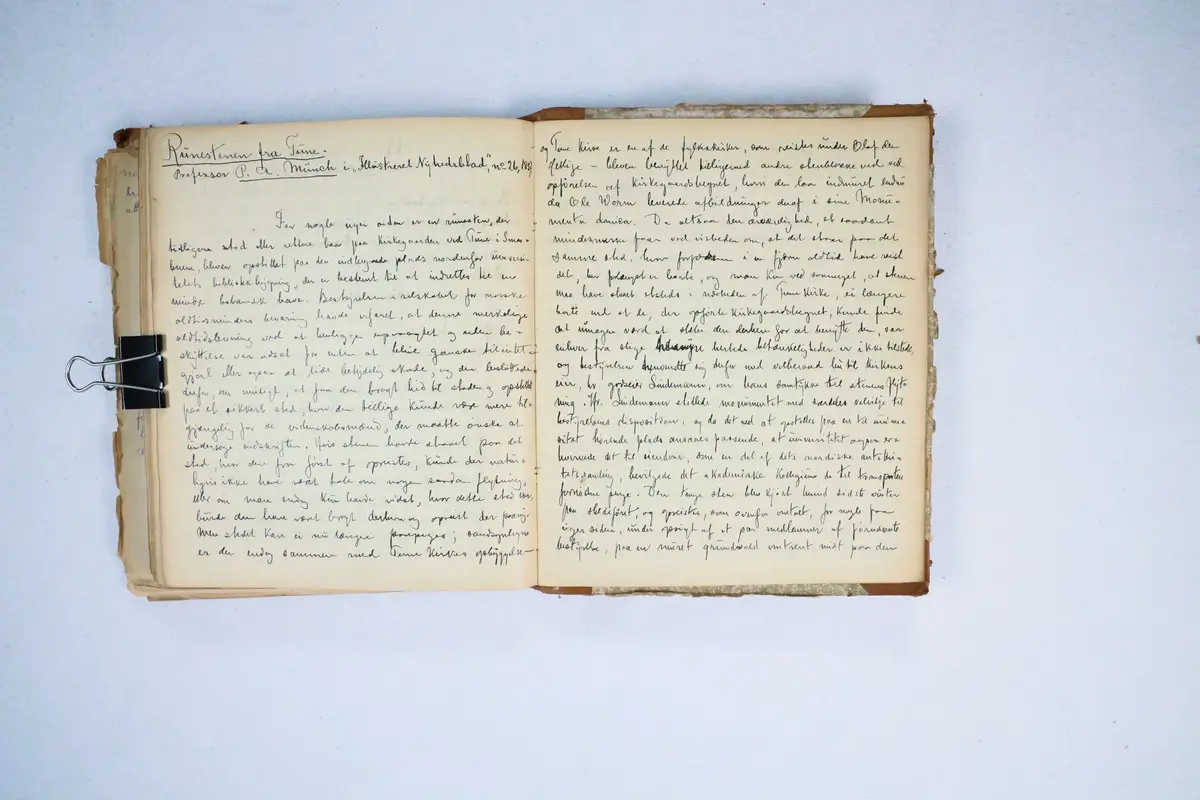 Runestenen fra Tune.
Professor P. A. Munch i „Illustreret Nyhedsblad", no 26, 1857
For nogle uger siden er en runesten, der
tidligere stod eller rettere laa paa kirkegaarden ved Tune i Smaa-
lenene, bleven opstillet paa den indhegnede plads nordenfor universi-
tetets bibliotheksbygning, der er bestemt til at indrettes til en
mindre botanisk have. Bestyrelsen i selskabet for norske
oldtidsminders bevaring havde erfaret, at denne mærkelige
oldtidslevning ved at henligge upaaagtet og uden be-
skyttelse var udsat for enten at blive ganske tilintet-
gjort eller ogsaa at lide betydelig skade, og den besluttede
derfor, om muligt, at faa den bragt hid til staden og opstillet
paa et sikkert sted, hvor den tillige kunde være mere til-
gjængelig for de videnskabsmænd, der maatte ønske at
undersøge indskriften. Hvis stenen havde staaet paa det
sted, hvor den fra først af opreistes, kunde der natur-
ligvis ikke have været tale om nogen saadan flytning,
eller om man endog kun havde vidst, hvor dette sted var,
burde den have været bragt derhen og opreist der paany.
Men stedet kan ei nu længere paapeges; sandsynligvis
er den endog sammen med Tune kirkes opbyggelse—
og Tune kirke er en af de fylkeskirker, som reistes under Olaf den
hellige – bleven benyttet tilligemed andre stenblokke ved
opførelsen af kirkegaardshegnet, hvori den laa indmuret endnu
da Ole Worm leverede afbildninger deraf i sine Monu-
menta danica. Da altsaa den ærværdighed, et saadant
mindesmærke faar ved visheden om, at det staar paa det
samme sted, hvor forfædrene i en fjern oldtid have reist
det, her forlængst er borte, og man kun ved saameget, at stenen
maa have staaet etsteds i nærheden af Tune kirke, ei længere
borte end at de, der opførte kirkegaardshegnet, kunde finde
det umagen værd at slæbe den derhen for at benytte den, saa
enhver fra slige hensyn hentede betænkeligheder er ikke tilstede,
og bestyrelsen henvendte sig derfor med velberaad hu til kirkens
eier, hr. godseier Sindemann, om hans samtykke til stenens flyt-
ning. Hr. Sindemann stillede monumentet med særdeles velvilje til
bestyrelsens disposition, og da det ved at opstilles paa en til univer-
sitetet hørende plads ansaaes passende, at universitetet ogsaa er-
hvervede det til eiendom, som en del af dets nordiske antikvi-
tetssamling, bevilgede det akademiske kollegium de til transporten
fornødne penge. Den tunge sten blev kjørt herind sidste vinter
paa slædeføret, og opreistes, som ovenfor omtalt, for nogle faa
uger siden, under opsigt af et par medlemmer af førnævnte
bestyrelse, paa en muret grundvold omtrent midt paa den